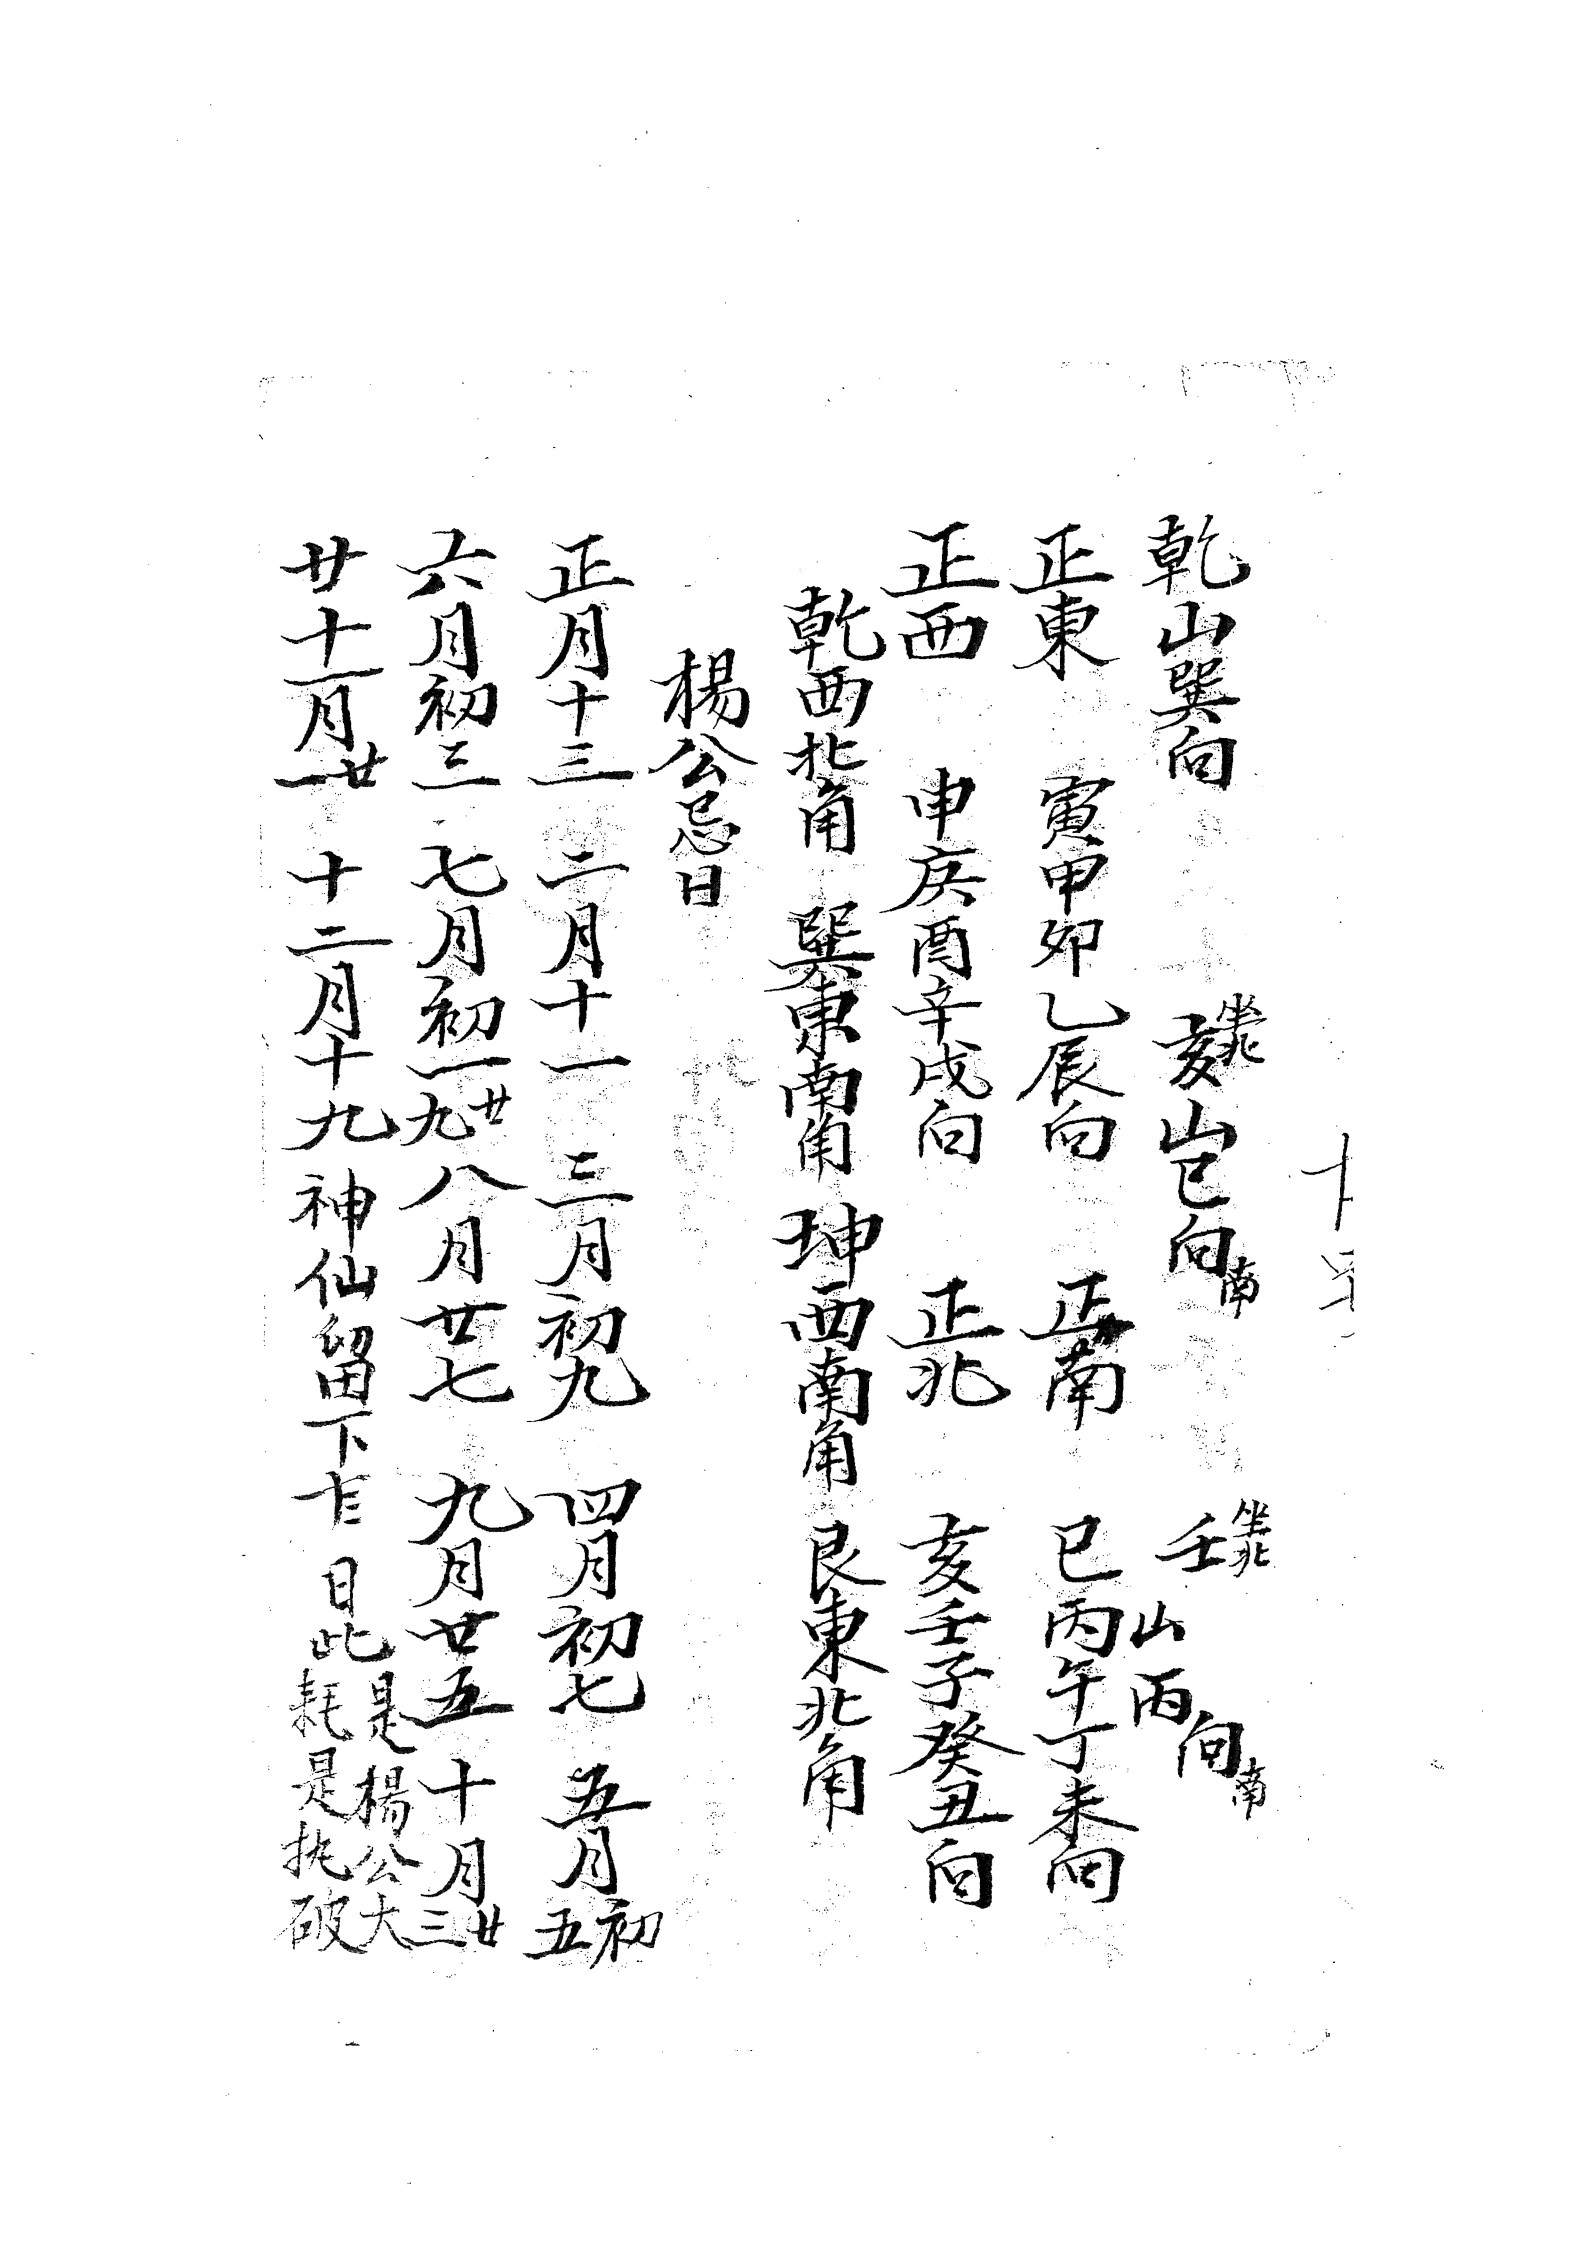 乾山巽向 亥坐北山巳向南 壬坐北山丙向南
正東 寅甲卯乙辰向 正南 巳丙午丁未向
正西 申庚酉辛戌向 正北 亥壬子癸丑向
乾西北角 巽東南角 坤西南角 艮東北角
楊公忌日
正月十三 二月十一 三月初九 四月初七 五月初五
六月初三 七月初一廿九 八月廿七 九月廿五 十月廿三
廿十一月廿一 十二月十九神仙留下十三日此是楊公大耗是执破